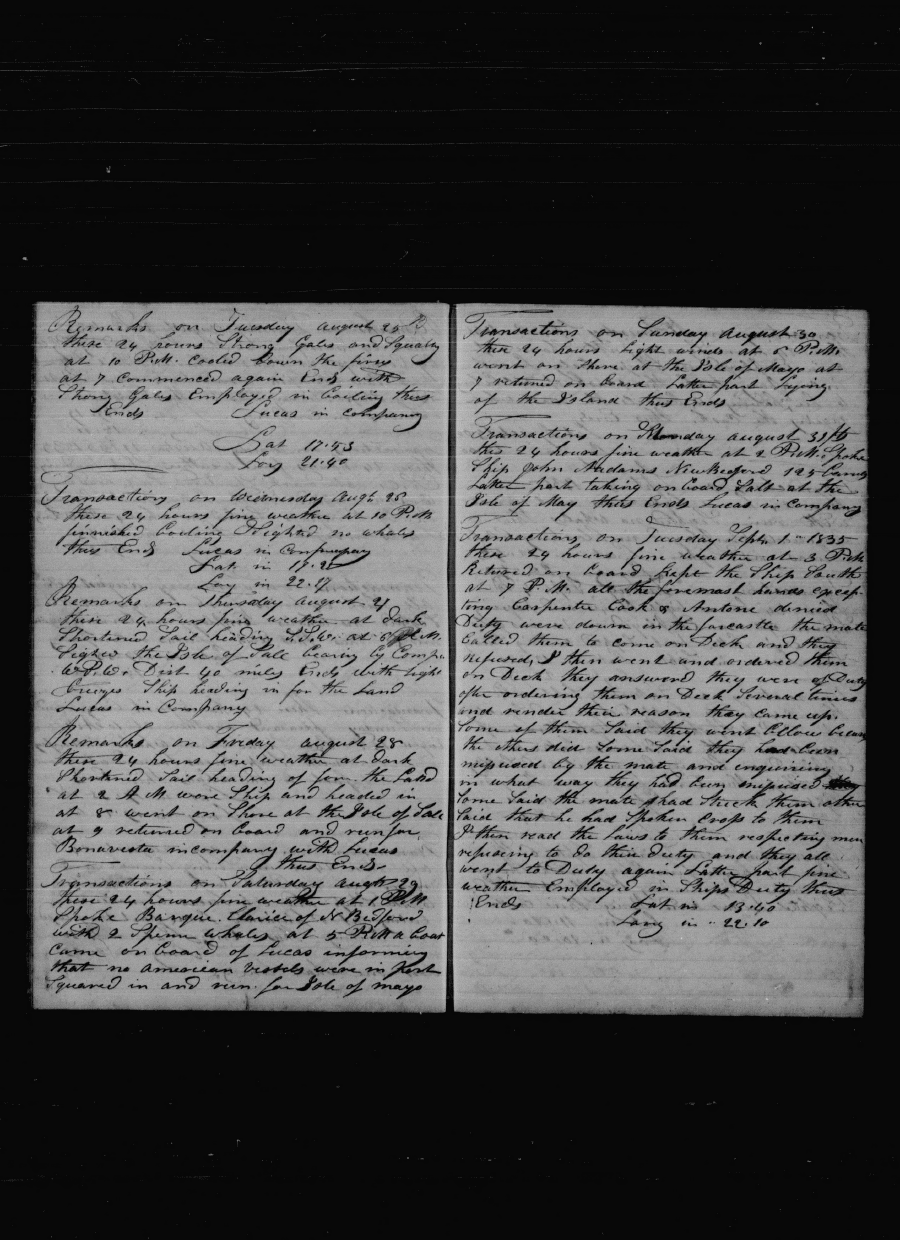 Remarks on Tuesday august 25th
these 24 hours Strong Gales and Squally
at 10 P.M. cooled down the fires
at 7 commenced again Ends with
Strong Gales Employed in boiling thus
Ends Lucas in company
Lat 17.53
Long 21.40
Transactions on Wednesday augt 26
these 24 hours fine weather at 10 P.M
finnished boiling Sighted no whales
thus Ends Lucas in Company
Lat in 17.
Long in 22.17
Remarks on Thursday august 27
these 24 hours fine weather at dark
Shortened Sail heading at
the Isle of Sale bearing by Comps
Dist 40 miles Ends with light
Ship heading in for the Land
Lucas in Company
Remarks on Friday august 28
these 24 hours fine weather at dark
Shortened Sail heading of for the Land
at 2 A M wore Ship and headed in
at 8 went on Shore at the Isle of Sale
at 9 returned on board and run for
Bonavesta in company with Lucas
thus Ends
Transactions on Saturday augt 29
these 24 hours fine weather at 1 P.M
Spoke Barque Clarice of N Bedford
with 2 Sperm whales at 5 P.M a boat
came on board of Lucas informing
that no american vessels were in port
Squared in and run for Isle of mayo
Transactions on Sunday august 30
these 24 hours light winds at 6 P.M.
went on Shore at the Isle of Mayo at
7 returned on board Latter part Laying
of the Island thus Ends
Transactions on Monday august 31st
this 24 hours fine weather at 2 P.M. Spoke
Ship John Addams New Bedford 125
Latter part taking on board Salt at the
Isle of May thus Ends Lucas in company
Transactions on Tuesday Sept 1st 1835
these 24 hours fine weather at 3 P.M
Returned on board kept the Ship South
at 7 P.M. all the foremost hands excep-
ting Carpenter Cook & Antone denied
Duty were down in the forcastle the mate
Called them to come on Deck and they
refused, I then went and ordered them
on Deck they answered they were of Duty
after ordering them on Deck Several times
and render their reason they came up.
Some of them Said they went because
the others did Some Said they had been
misused by the mate and enquiring
in what way they had been misused
Some Said the mate had Struck them other
Said that he had Spoken cross to them
I then read the laws to them respecting men
refusing to do their Duty and they all
went to Duty again Latter part fine
weather Employed in Ships Duty thus
Ends Lat in 13.40
Long in 22.10